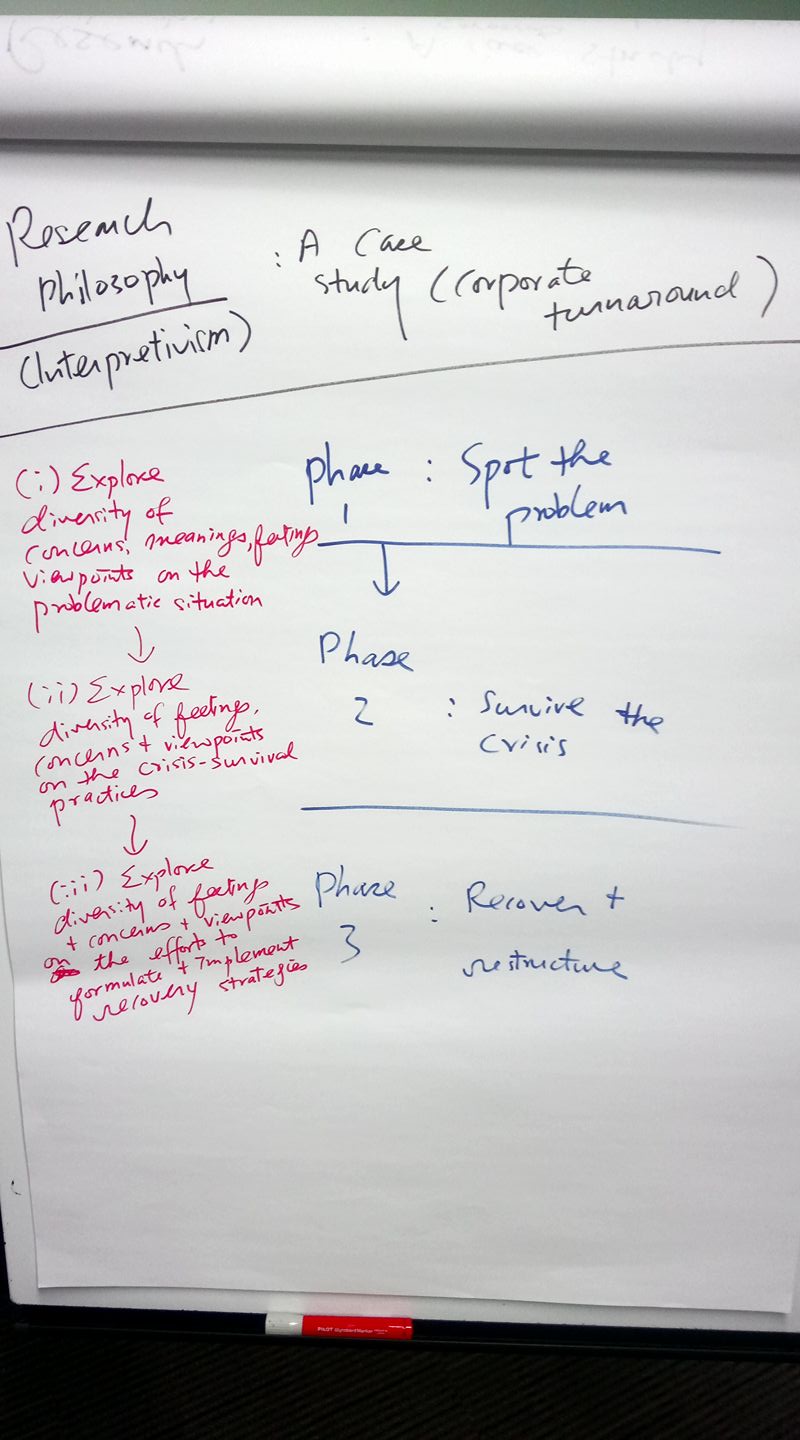 Research
Philosophy
(Interpretivism)
: A Case
study (Corporate
turnaround)
(i) Explore
diversity of
concerns, meanings, feelings
viewpoints on the
problematic situation
↓
(ii) Explore
diversity of feelings,
concerns + viewpoints
on the crisis-survival
practices
↓
(iii) Explore
diversity of feelings
+ concerns + viewpoints
on the efforts to
formulate + implement
recovery strategies
Phase : Spot the
1 problem
↓
Phase
2 : Survive the
crisis
Phase : Recover +
3 restructure
PILOT